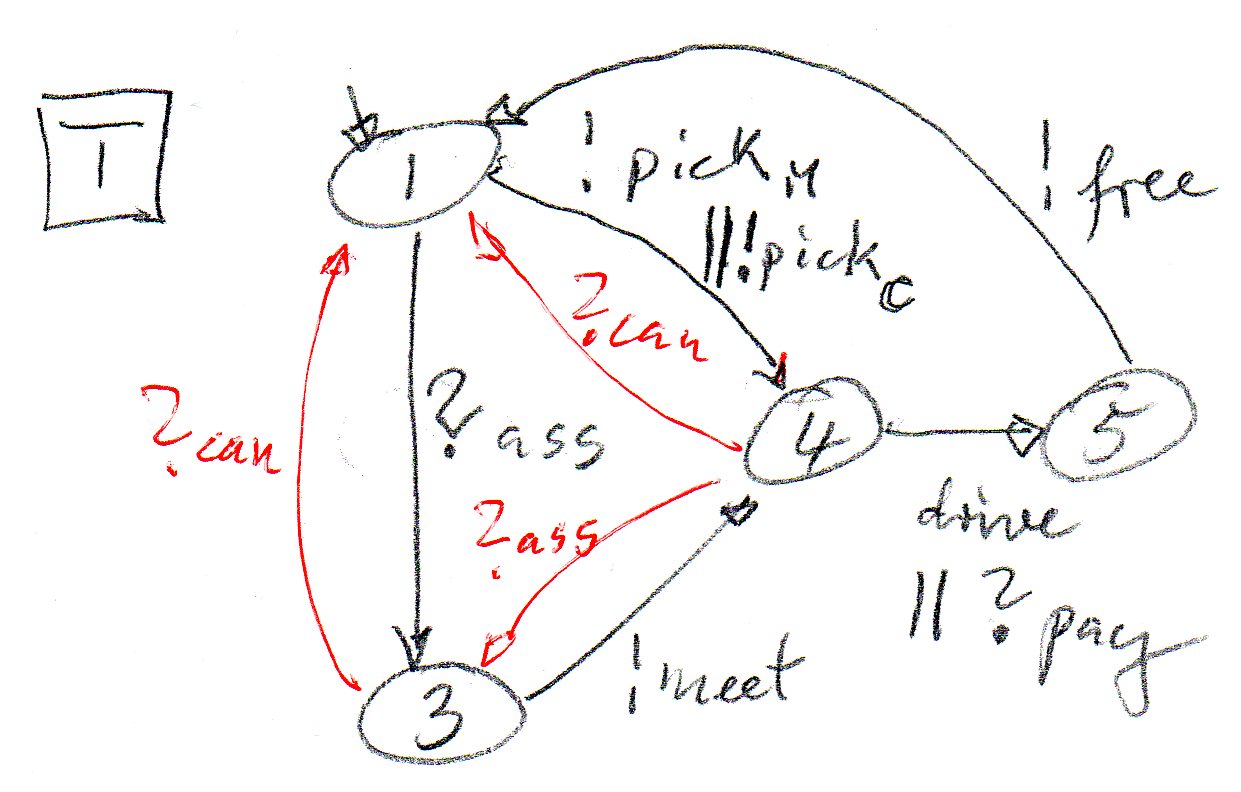 T
1
! pick M
||! pick C
! free
? can
? can
? ass
4
5
? ass
drive
|| ? pay
! meet
3